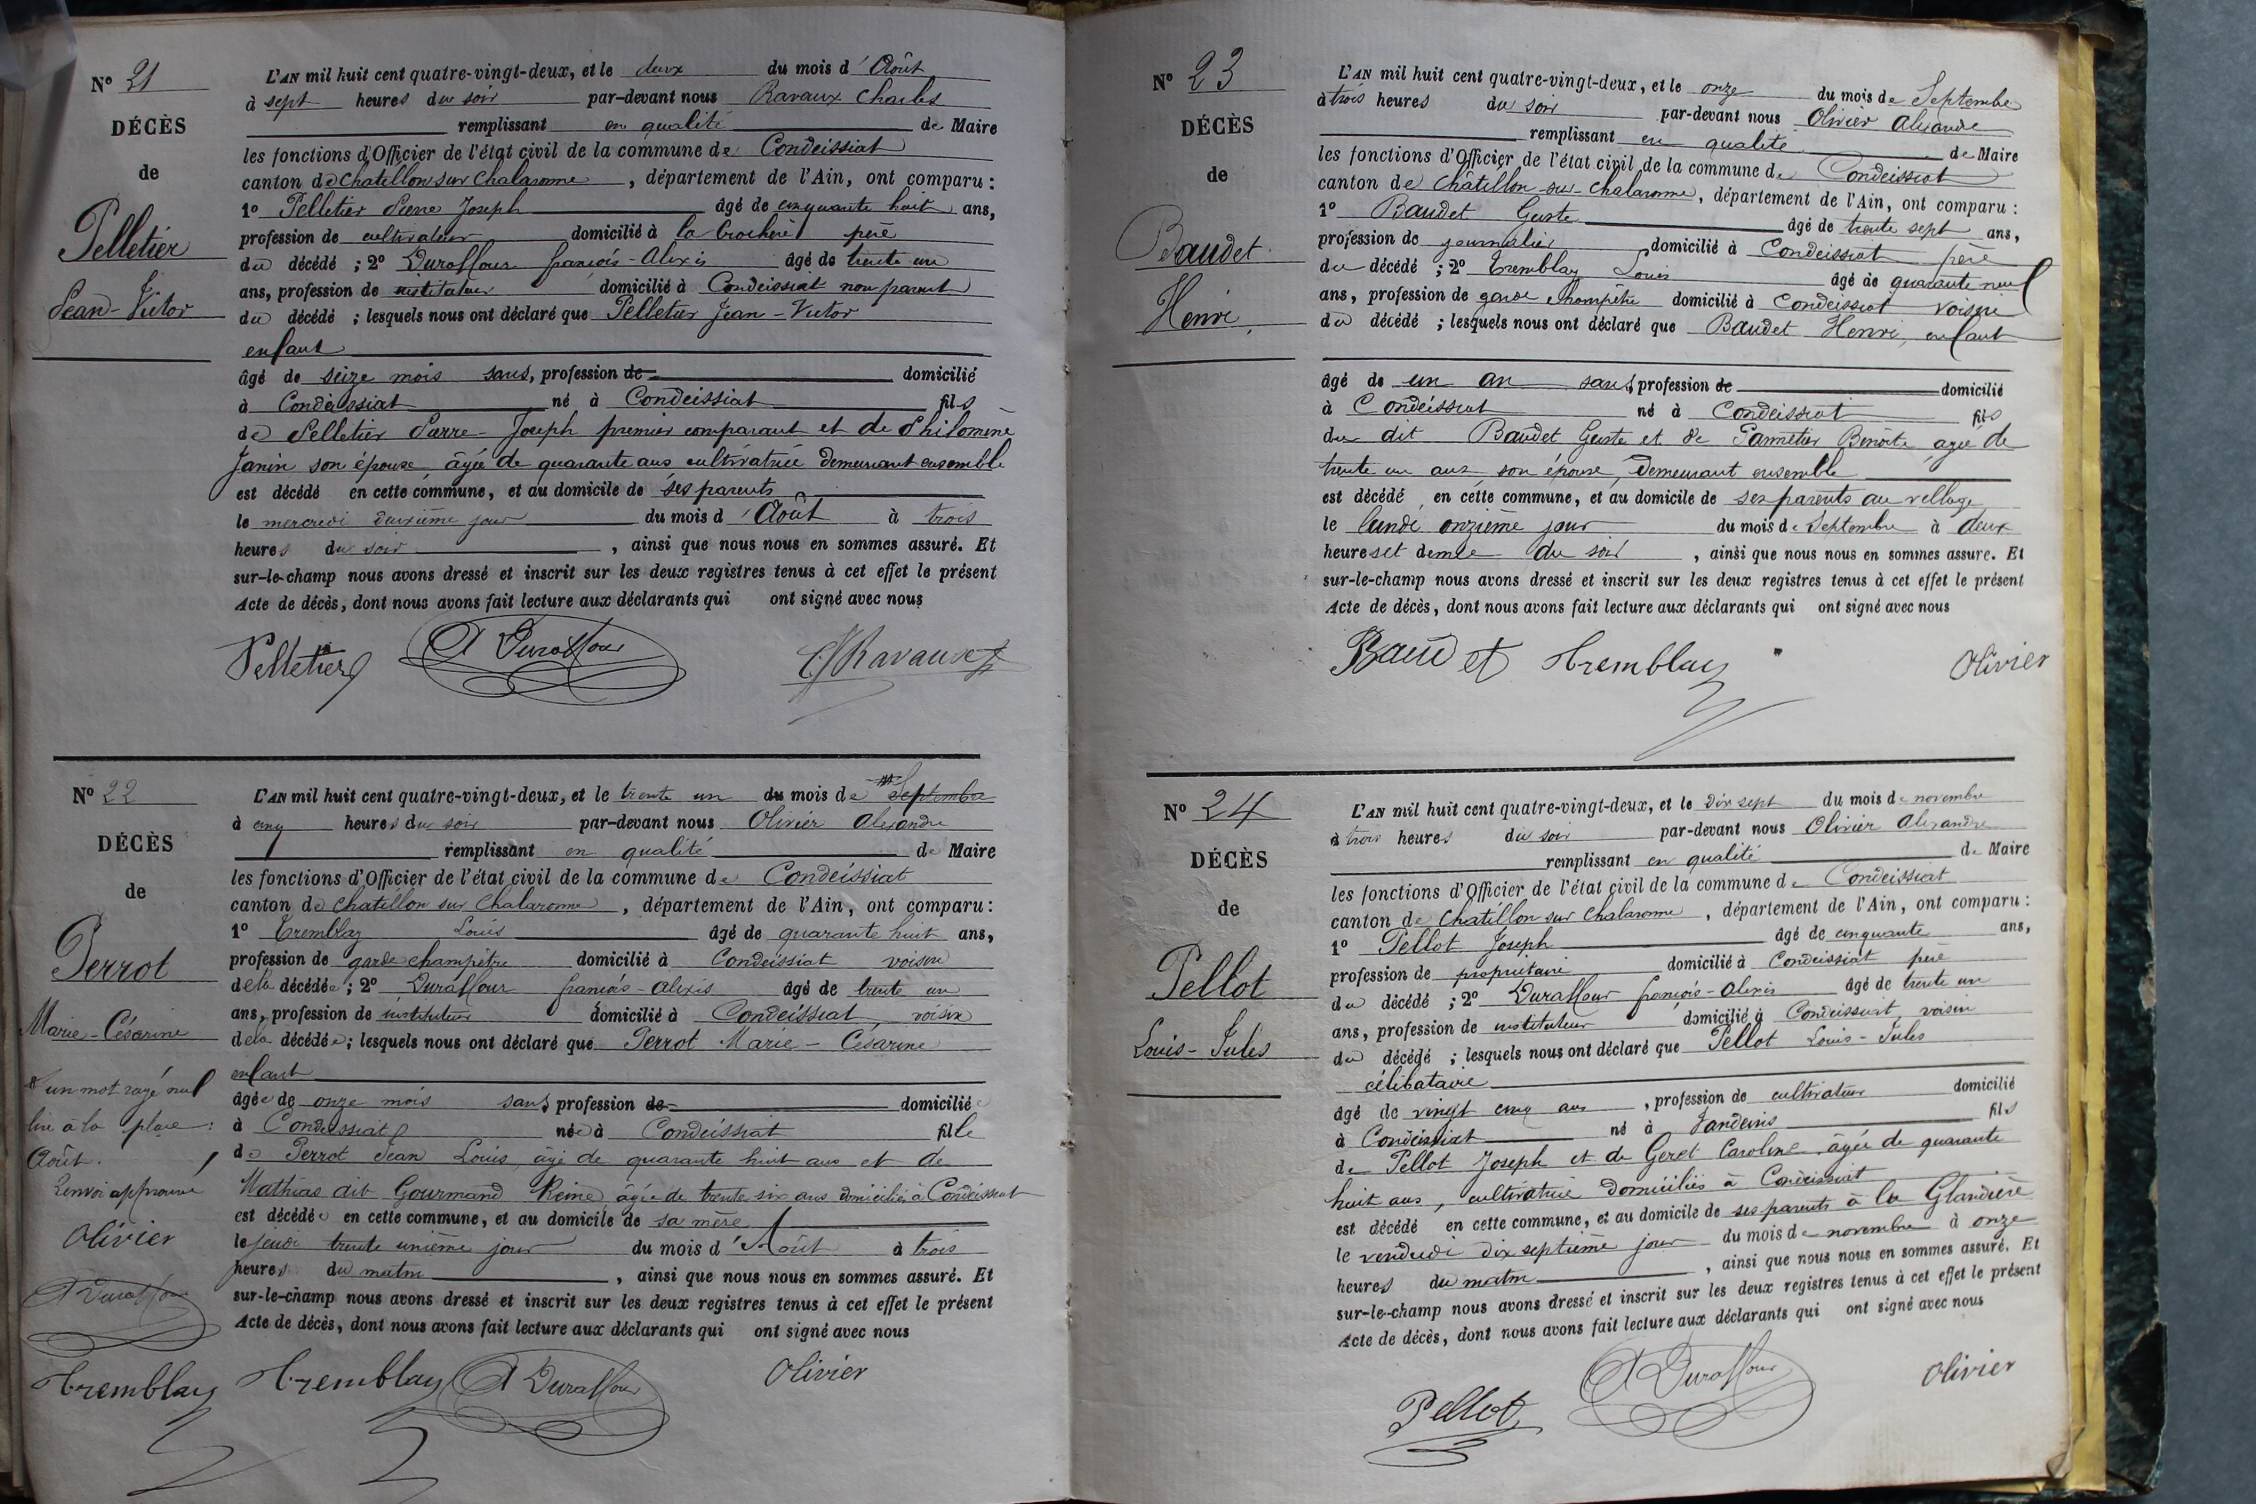 N° 21
DÉCÈS
de
Pelletier
Jean-Victor
L'AN mil huit cent quatre-vingt-deux, et le deux du mois d'Août
à sept heures du soir par-devant nous Ravaux Charles
remplissant en qualité de Maire
les fonctions d'Officier de l'état civil de la commune de Condeissiat
canton de Chatillon sur Chalaronne, département de l'Ain, ont comparu :
1° Pelletier Pierre Joseph âgé de cinquante huit ans,
profession de cultivateur domicilié à la père
du décédé ; 2° Duraffour françois-Alexis âgé de trente un
ans, profession de instituteur domicilié à Condeissiat non parent
du décédé ; lesquels nous ont déclaré que Pelletier Jean-Victor
enfant
âgé de seize mois sans, profession de domicilié
à Condeissiat né à Condeissiat fils
de Pelletier Pierre-Joseph premier comparant et de Philomène
Janin son épouse âgée de quarante ans cultivatrice demeurant ensemble
est décédé en cette commune, et au domicile de ses parents
le mercredi deuxième jour du mois d'Août à trois
heures du soir, ainsi que nous nous en sommes assuré. Et
sur-le-champ nous avons dressé et inscrit sur les deux registres tenus à cet effet le présent
Acte de décès, dont nous avons fait lecture aux déclarants qui ont signé avec nous
Pelletier A Duraffour Ch Ravaux
N° 22
DÉCÈS
de
Perrot
Marie-Césarine
un mot rayé nul
lire à la place :
Août.
Renvoi approuvé
Olivier
A Duraffour
Tremblay
L'AN mil huit cent quatre-vingt-deux, et le trente un du mois de Septembre
à cinq heures du soir par-devant nous Olivier Alexandre
remplissant en qualité de Maire
les fonctions d'Officier de l'état civil de la commune de Condeissiat
canton de Chatillon sur Chalaronne, département de l'Ain, ont comparu :
1° Tremblay Louis âgé de quarante huit ans,
profession de garde champêtre domicilié à Condeissiat voisin
de la décédée ; 2° Duraffour françois-alexis âgé de trente un
ans, profession de instituteur domicilié à Condeissiat voisin
de la décédée ; lesquels nous ont déclaré que Perrot Marie-Césarine
enfant
âgée de onze mois sans, profession de domiciliée
à Condeissiat née à Condeissiat fille
de Perrot Jean Louis âgé de quarante huit ans et de
Mathias dit Gourmand Reine, âgée de trente six ans domiciliés à Condeissiat
est décédée en cette commune, et au domicile de sa mère
le jeudi trente unième jour du mois d'Août à trois
heures du matin, ainsi que nous nous en sommes assuré. Et
sur-le-champ nous avons dressé et inscrit sur les deux registres tenus à cet effet le présent
Acte de décès, dont nous avons fait lecture aux déclarants qui ont signé avec nous
Tremblay A Duraffour Olivier
N° 23
DÉCÈS
de
Baudet
Henri
L'AN mil huit cent quatre-vingt-deux, et le onze du mois de Septembre
à trois heures du soir par-devant nous Olivier Alexandre
remplissant en qualité de Maire
les fonctions d'Officier de l'état civil de la commune de Condeissiat
canton de Châtillon sur Chalaronne, département de l'Ain, ont comparu :
1° Baudet Juste âgé de trente sept ans,
profession de journalier domicilié à Condeissiat père
du décédé ; 2° Tremblay Louis âgé de quarante neuf
ans, profession de garde champêtre domicilié à Condeissiat voisin
du décédé ; lesquels nous ont déclaré que Baudet Henri, enfant
âgé de un an sans, profession de domicilié
à Condeissiat né à Condeissiat fils
du dit Baudet Juste et de Benoîte âgée de
trente un ans son épouse, demeurant ensemble
est décédé en cette commune, et au domicile de ses parents au village
le lundi onzième jour du mois de Septembre à deux
heures et demie du soir, ainsi que nous nous en sommes assuré. Et
sur-le-champ nous avons dressé et inscrit sur les deux registres tenus à cet effet le présent
Acte de décès, dont nous avons fait lecture aux déclarants qui ont signé avec nous
Baudet Tremblay Olivier
N° 24
DÉCÈS
de
Pellot
Louis-Jules
L'AN mil huit cent quatre-vingt-deux, et le dix sept du mois de novembre
à trois heures du soir par-devant nous Olivier Alexandre
remplissant en qualité de Maire
les fonctions d'Officier de l'état civil de la commune de Condeissiat
canton de Châtillon sur Chalaronne, département de l'Ain, ont comparu :
1° Pellot Joseph âgé de cinquante ans,
profession de propriétaire domicilié à Condeissiat père
du décédé ; 2° Duraffour françois-Alexis âgé de trente un
ans, profession de instituteur domicilié à Condeissiat, voisin
du décédé ; lesquels nous ont déclaré que Pellot Louis-Jules
célibataire
âgé de vingt cinq ans, profession de cultivateur domicilié
à Condeissiat né à Vandeins fils
de Pellot Joseph et de Geret Caroline âgée de quarante
huit ans, cultivatrice domiciliés à Condeissiat
est décédé en cette commune, et au domicile de ses parents à la Glandière
le vendredi dix septième jour du mois de novembre à onze
heures du matin, ainsi que nous nous en sommes assuré. Et
sur-le-champ nous avons dressé et inscrit sur les deux registres tenus à cet effet le présent
Acte de décès, dont nous avons fait lecture aux déclarants qui ont signé avec nous
Pellot A Duraffour Olivier